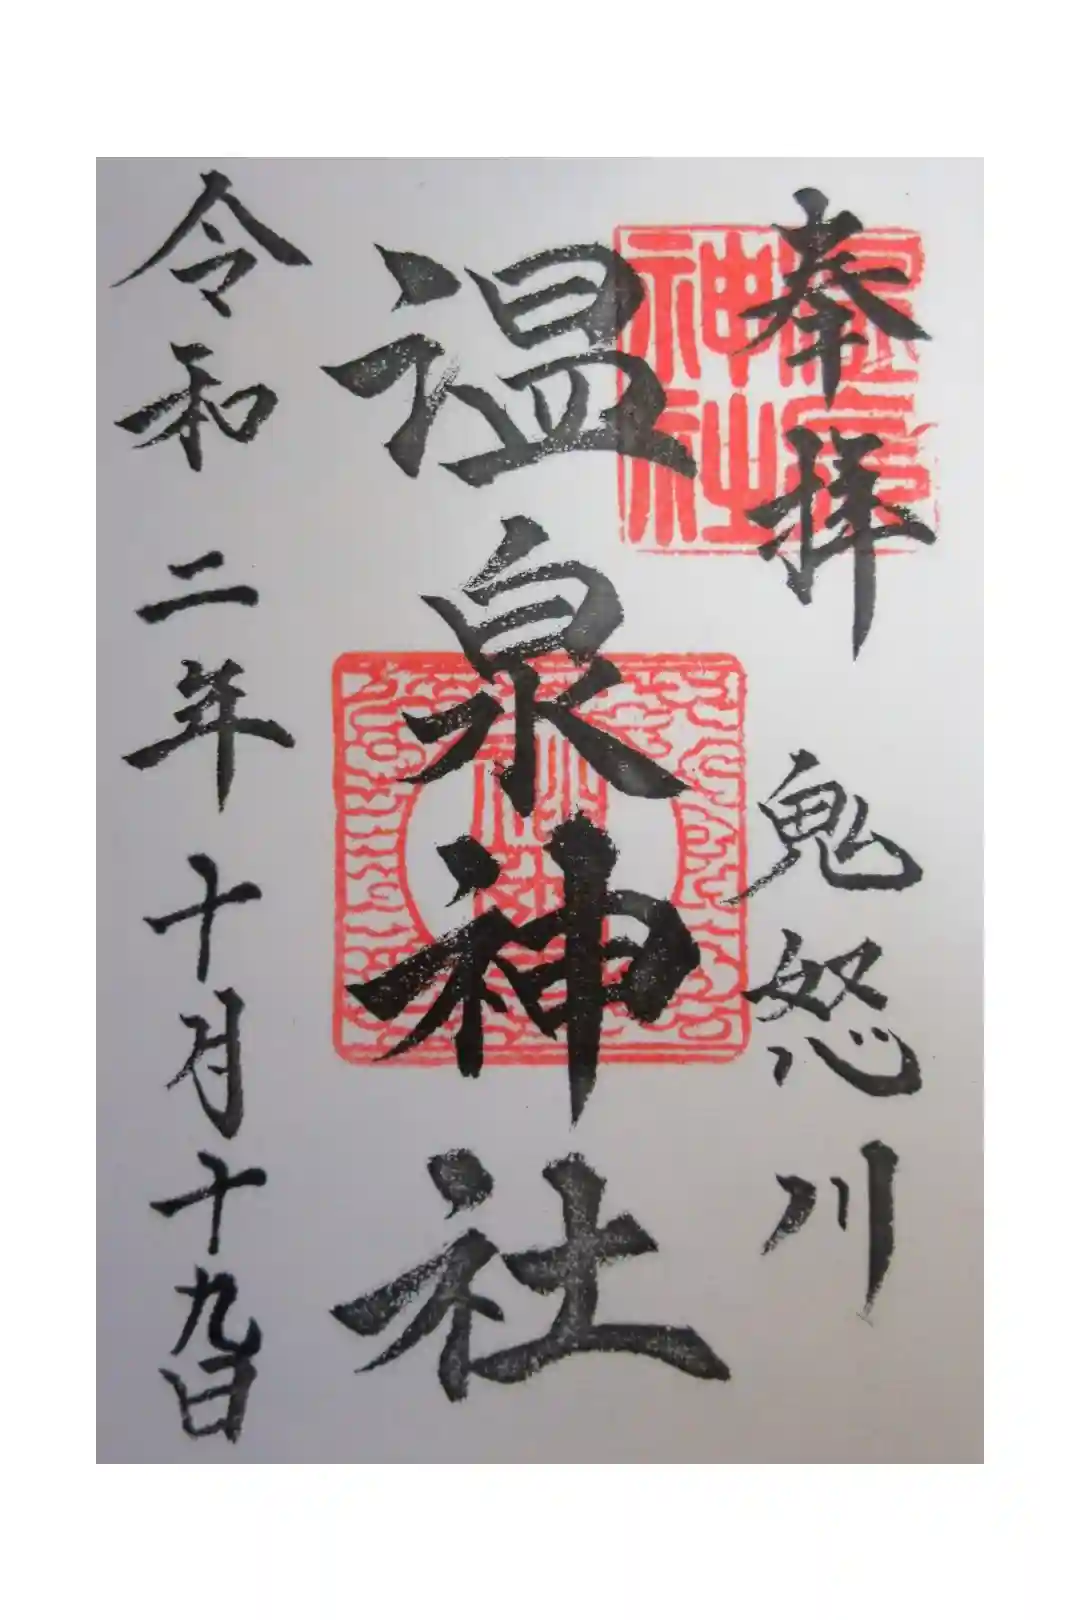 奉拝 鬼怒川
温泉神社
令和二年十月十九日
神社